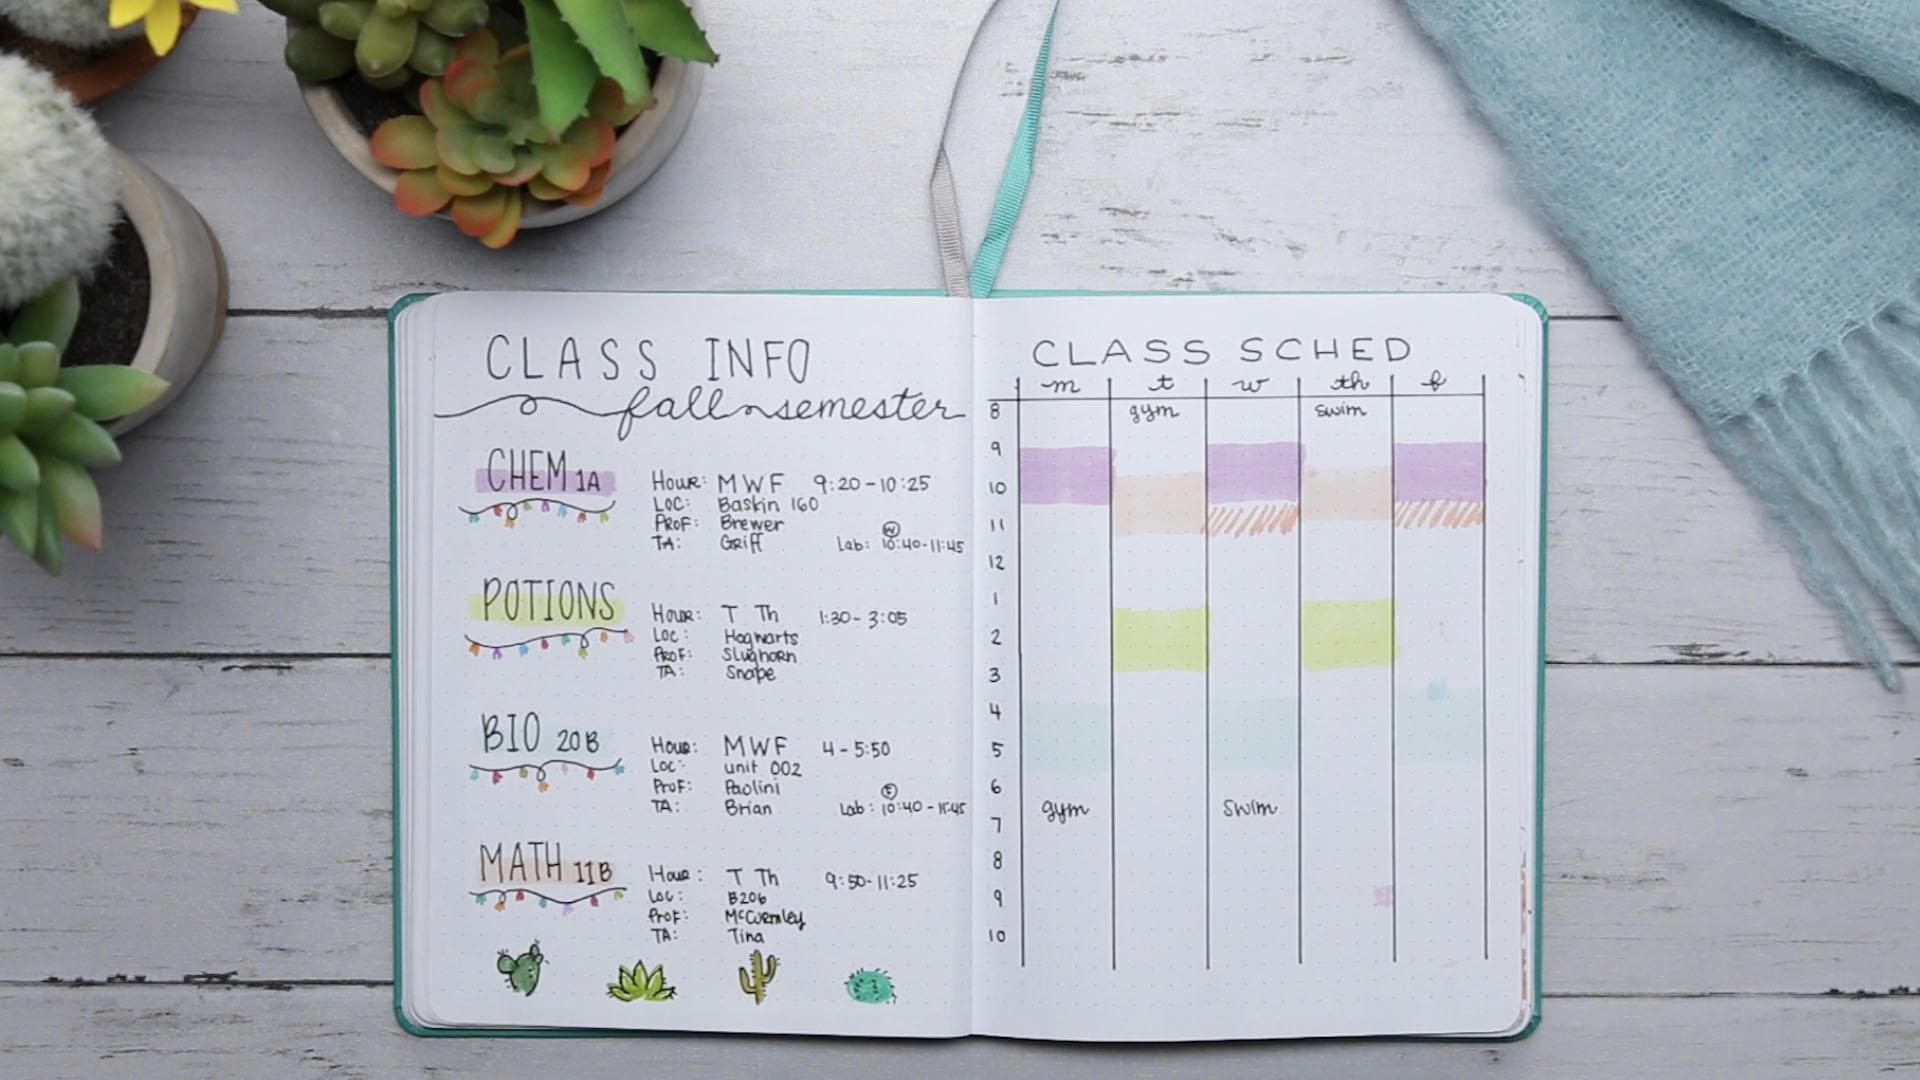 CLASS INFO
fall semester
CHEM 1A
Hour: M W F 9:20-10:25
LOC: Baskin 160
PROF: Brewer
TA: Griff
W
Lab: 10:40-11:45
POTIONS
Hour: T Th 1:30-3:05
Loc: Hogwarts
Prof: Slughorn
TA: Snape
BIO 20B
Hour: M W F 4-5:50
Loc: unit 002
Prof: Paolini
TA: Brian
F
Lab: 10:40-11:45
MATH 11B
Hour: T Th 9:50-11:25
Loc: B206
Prof:
TA: Tina
CLASS SCHED
m t w th f
8 gym swim
9
10
11
12
1
2
3
4
5
6
gym swim
7
8
9
10